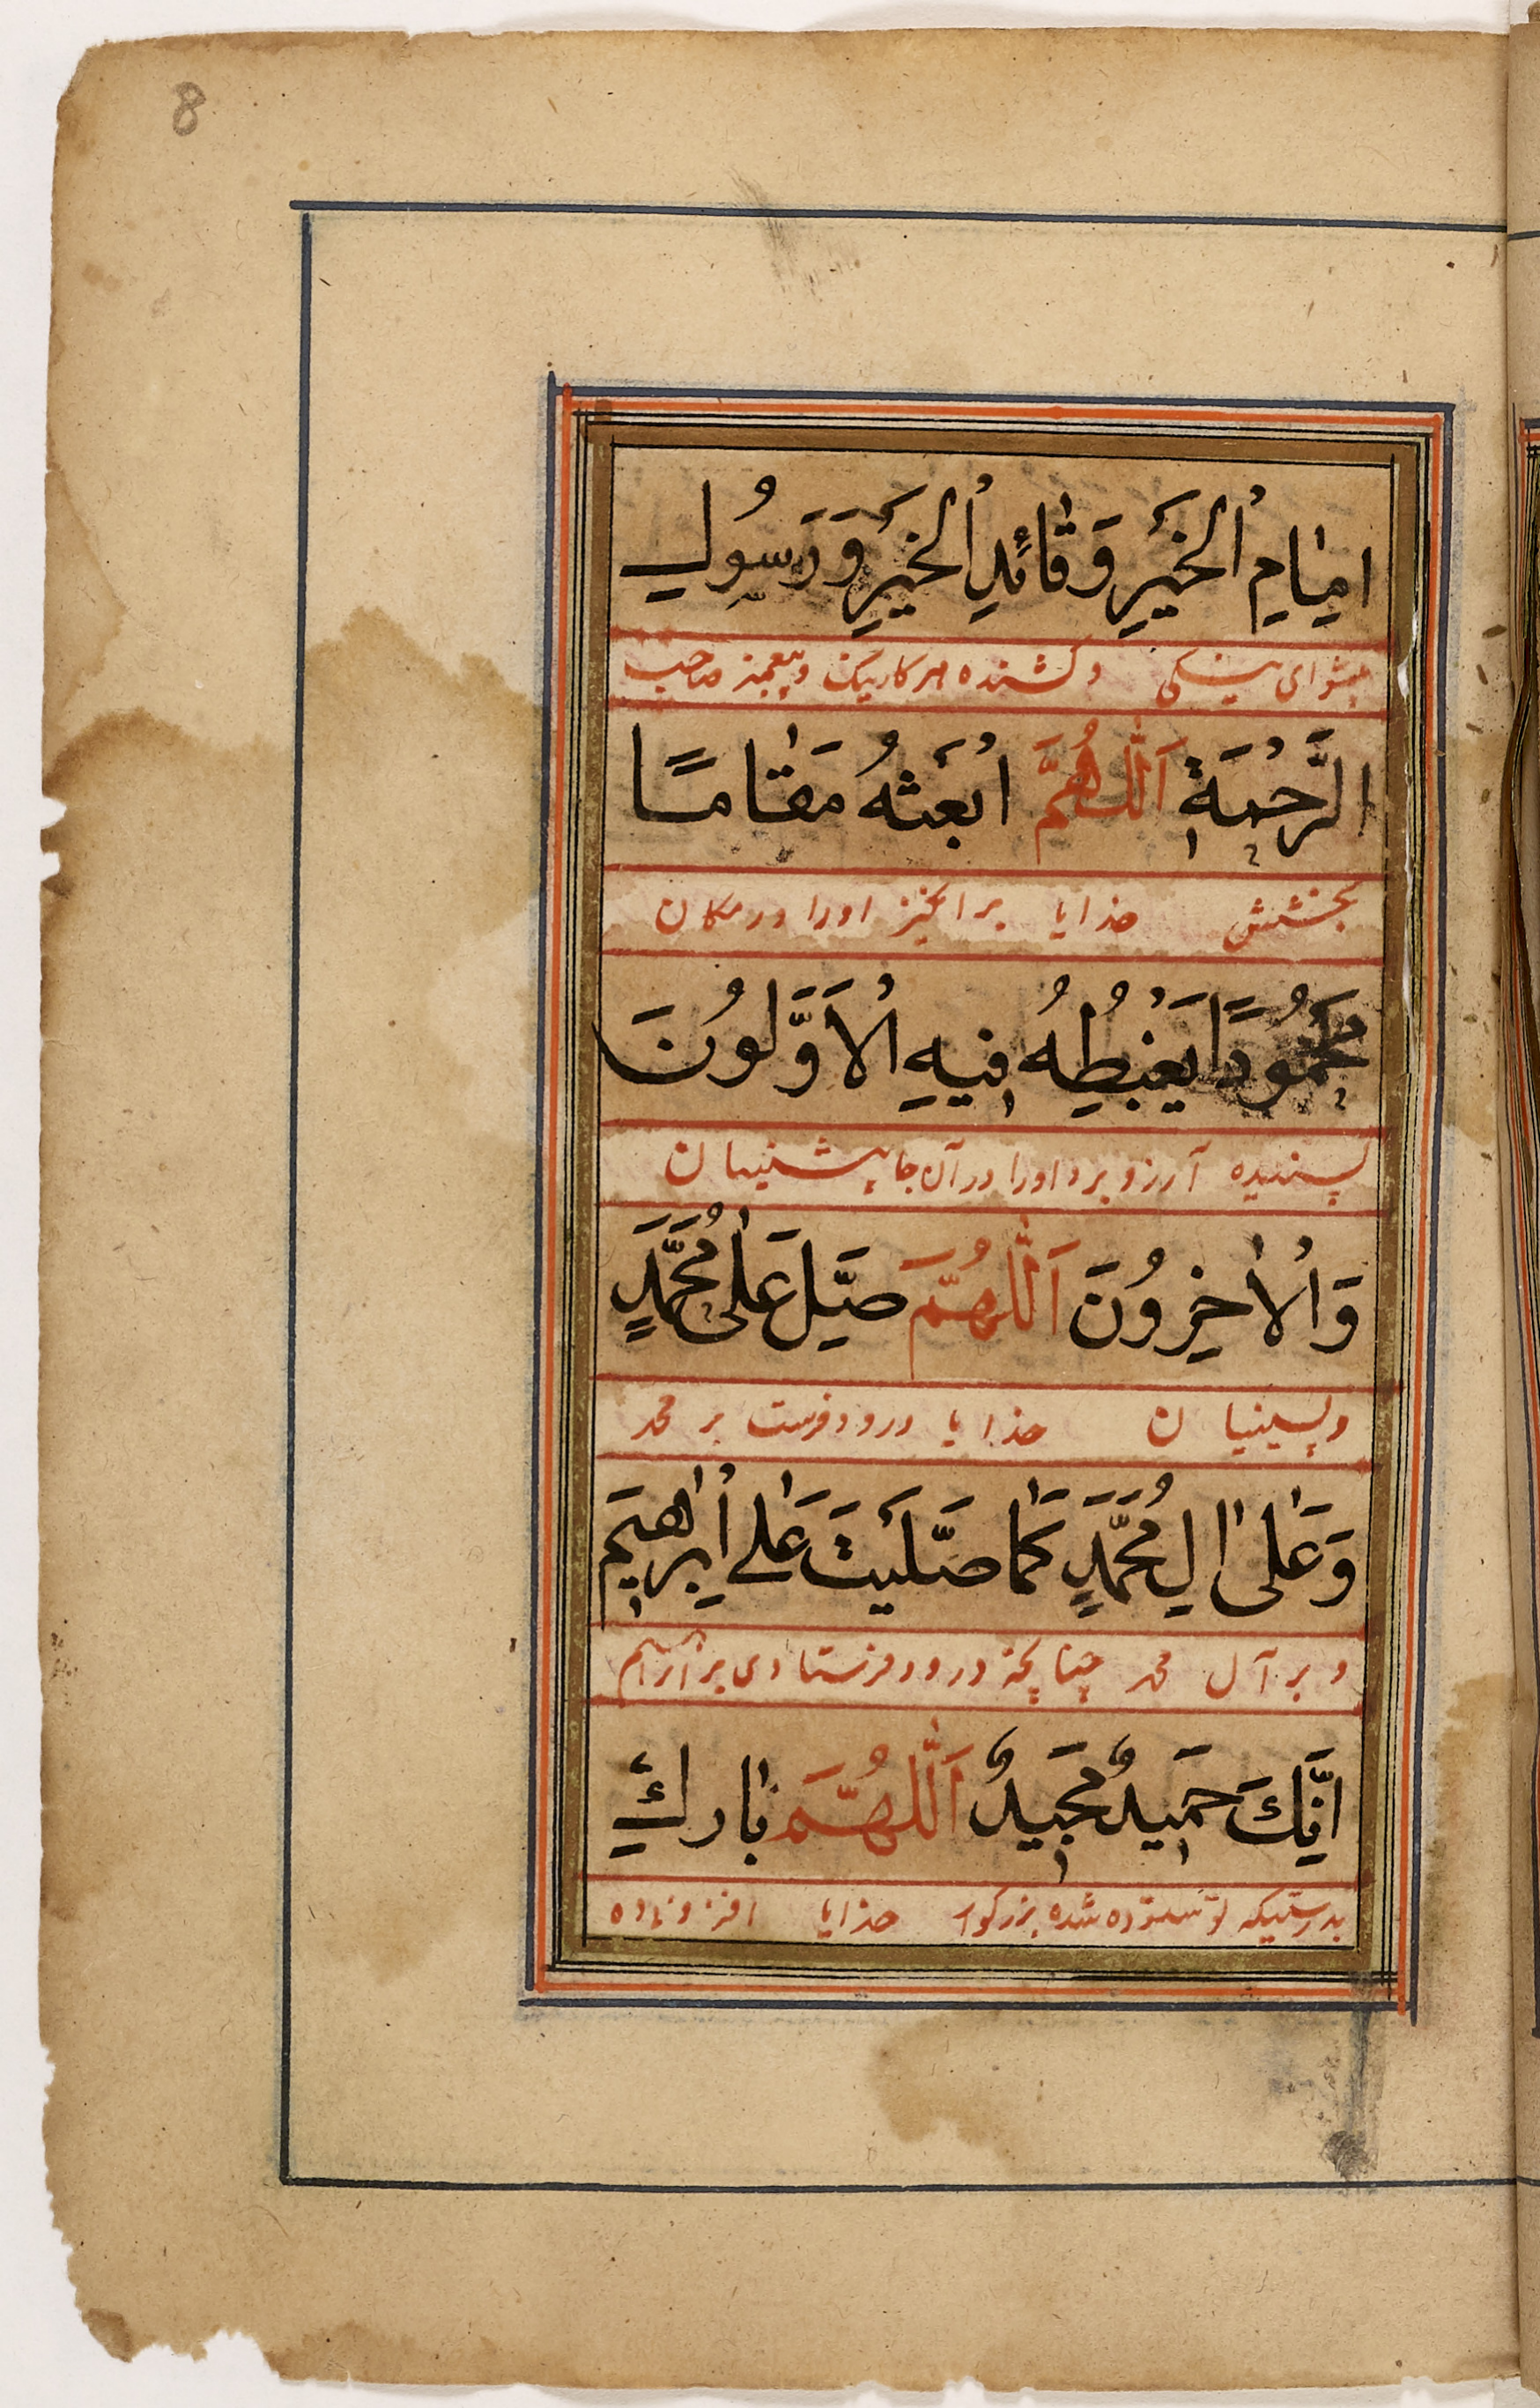 8
اِمَامِ الْخَيْرِ وَقَائِدِ الْخَيْرِ وَرَسُولِ
پیشوای نیکی و کشنده هر کار نیک و پیغمبر صاحب
الرَّحْمَةِ اَللّٰهُمَّ ابْعَثْهُ مَقَامًا
بخشش خدایا برانگیز اورا در مکان
مَحْمُودًا يَغْبِطُهُ فِيهِ الْاَوَّلُونَ
پسندیده آرزو برد اورا در آن جا پیشنیان
وَالْاٰخِرُونَ اَللّٰهُمَّ صَلِّ عَلٰى مُحَمَّدٍ
و پسینیان خدایا درود فرست بر محمد
وَعَلٰى اٰلِ مُحَمَّدٍ كَمَا صَلَّيْتَ عَلٰى اِبْرٰهِيمَ
و بر آل محمد چنانچه درود فرستادی بر ابراهیم
اِنَّكَ حَمِيدٌ مَجِيدٌ اَللّٰهُمَّ بَارِكْ
بدرستیکه تو ستوده شده بزرگوار خدایا افزونی ده